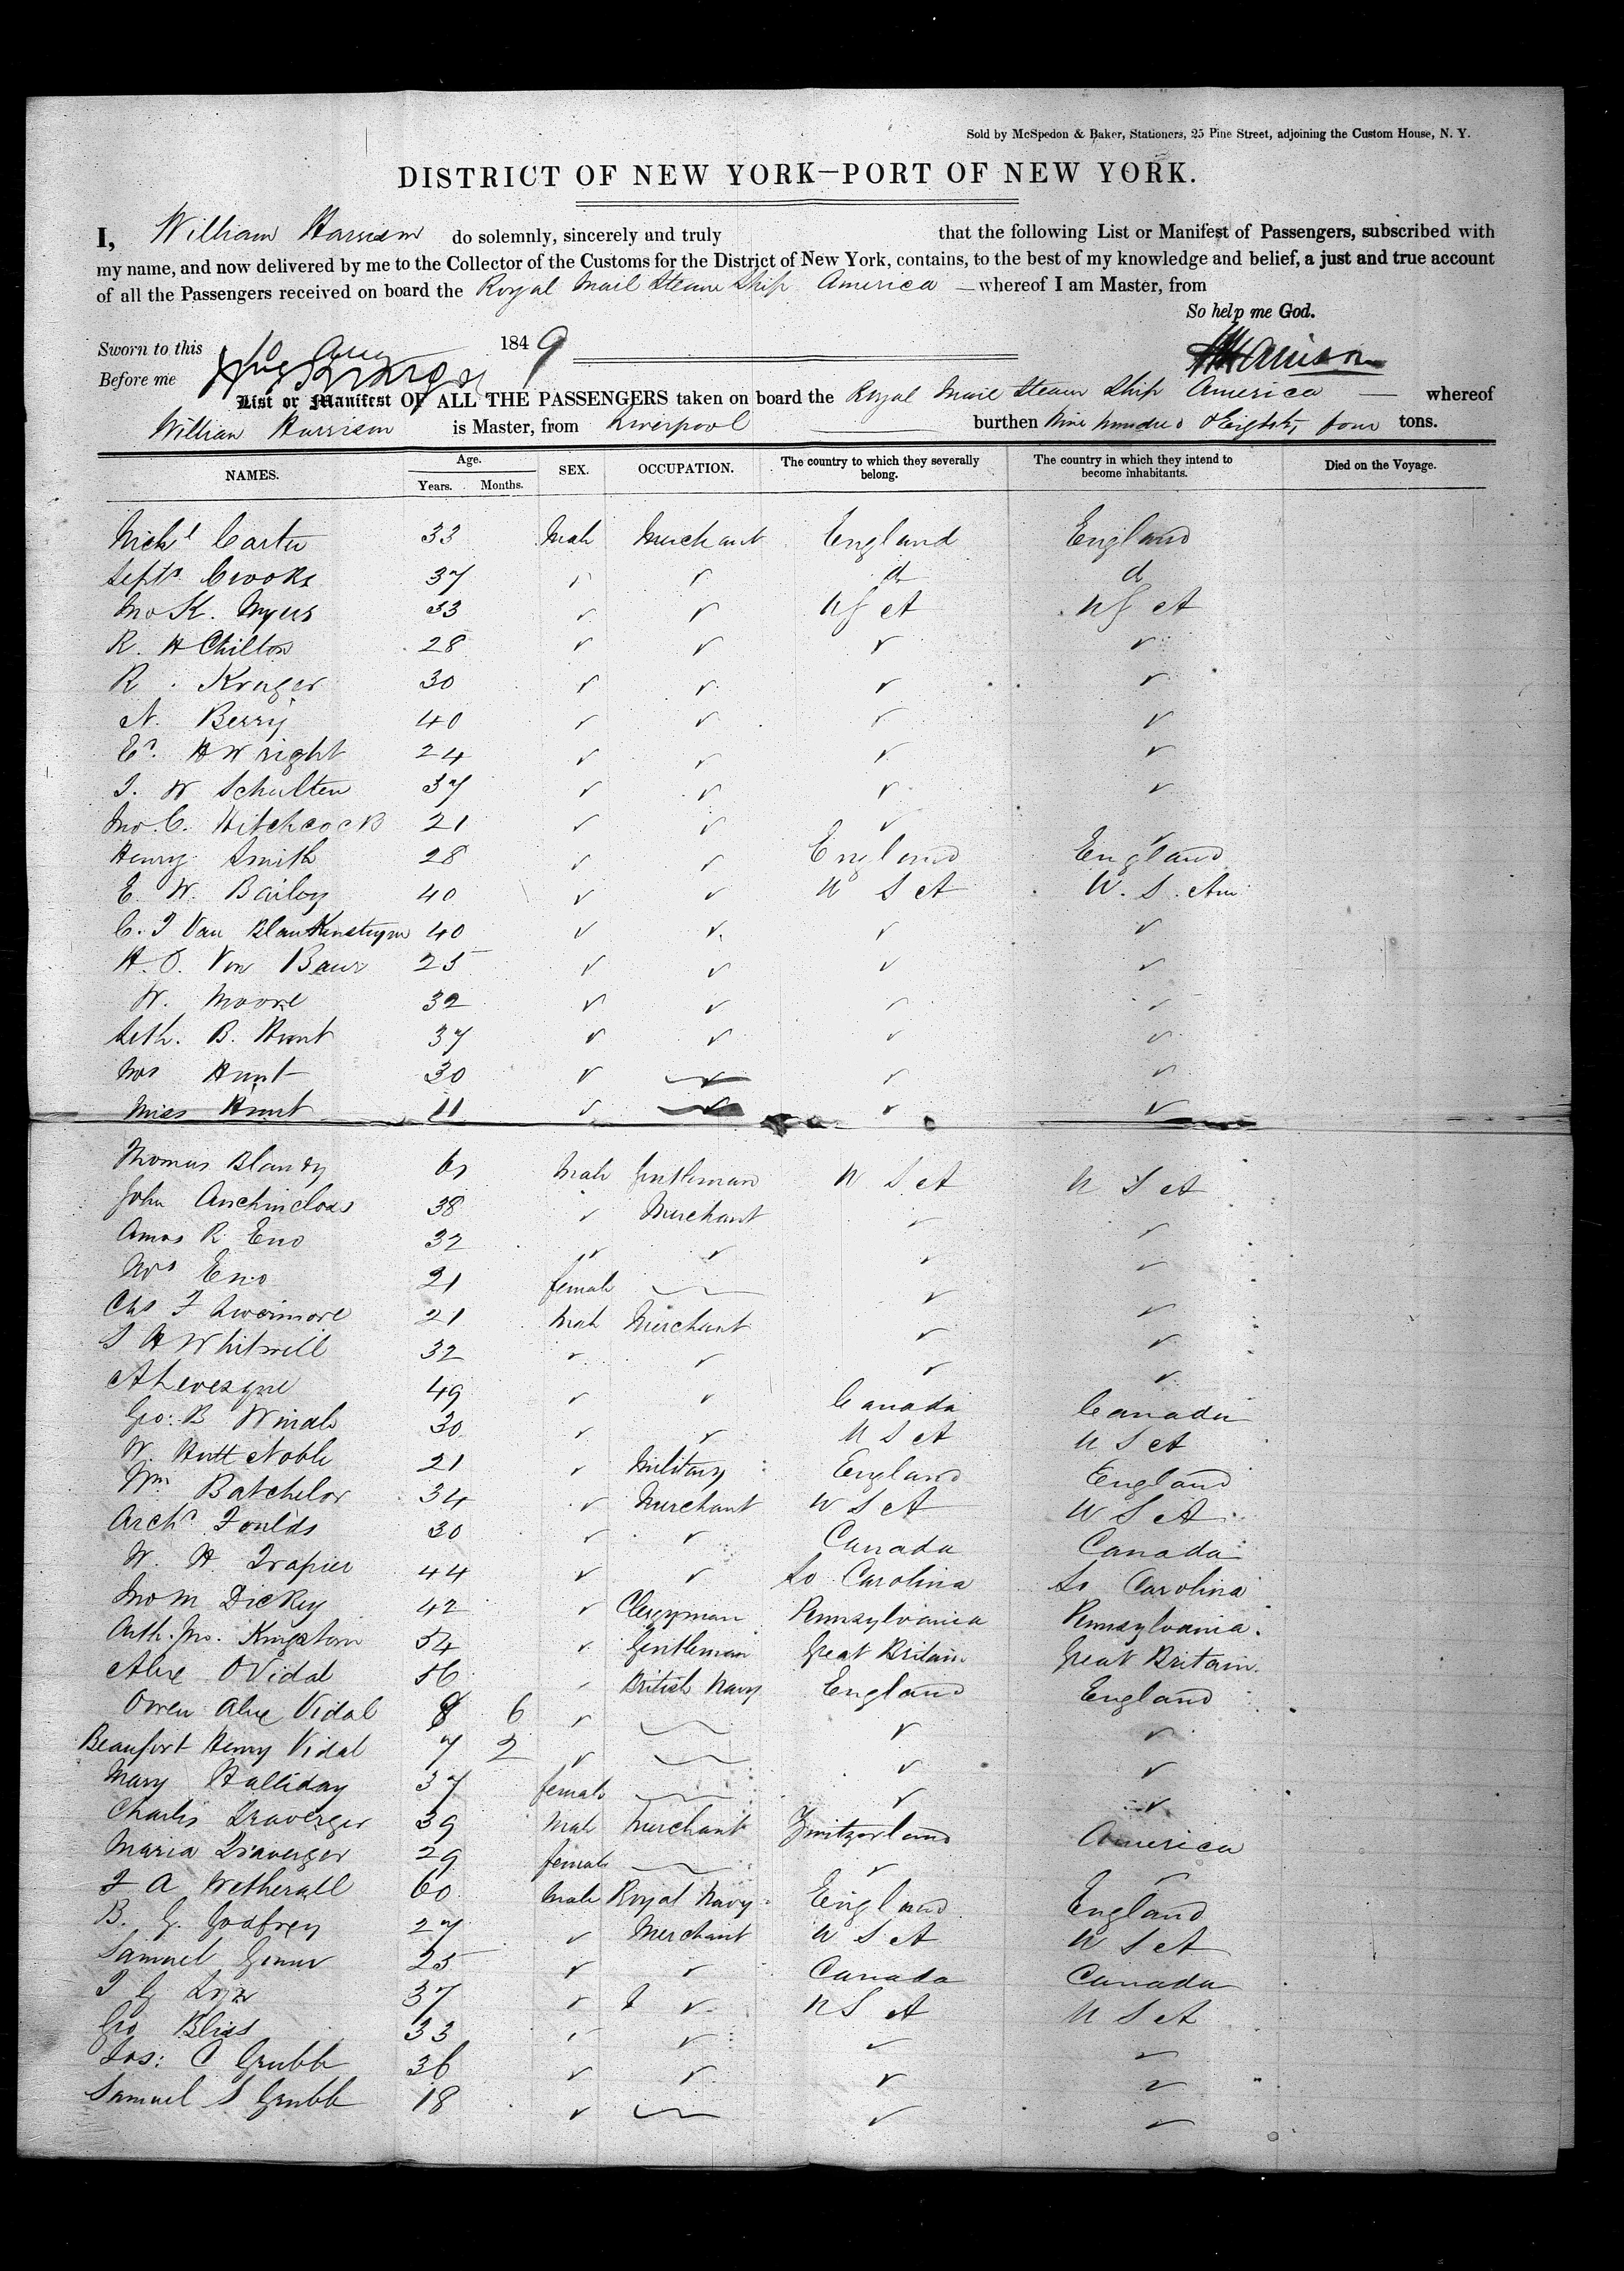 Sold by McSpedon & Baker, Stationers, 25 Pine Street, adjoining the Custom House, N. Y.
DISTRICT OF NEW YORK—PORT OF NEW YORK.
I, William Harrison do solemnly, sincerely and truly that the following List or Manifest of Passengers, subscribed with
my name, and now delivered by me to the Collector of the Customs for the District of New York, contains, to the best of my knowledge and belief, a just and true account
of all the Passengers received on board the Royal Mail Steam Ship America — whereof I am Master, from
So help me God.
Sworn to this 10 Aug 1849 Harrison
Before me
List or Manifest OF ALL THE PASSENGERS taken on board the Royal Mail Steam Ship America — whereof
William Harrison is Master, from Liverpool burthen Nine hundred & Eighty four tons.
NAMES. Age. Years. Months. SEX. OCCUPATION. The country to which they severally belong. The country in which they intend to become inhabitants. Died on the Voyage.
Mich^l Carter 33 Male Merchant England England
Sept^s Crooks 37 ✓ ✓ d d
Jno K. Myers 33 ✓ ✓ U S A U S A
R. H Chilton 28 ✓ ✓ ✓ ✓
R. Kruger 30 ✓ ✓ ✓ ✓
N. Berry 40 ✓ ✓ ✓ ✓
E^d. H Wright 24 ✓ ✓ ✓ ✓
J. W Schulten 37 ✓ ✓ ✓ ✓
Jno. C. Hitchcock 21 ✓ ✓ ✓ ✓
Henry Smith 28 ✓ ✓ England England
E. W. Bailey 40 ✓ ✓ U S A U. S. Am
C. J Van Blankensteyn 40 ✓ ✓ ✓ ✓
H. O. Von Baur 25 ✓ ✓ ✓ ✓
W. Moore 32 ✓ ✓ ✓ ✓
Seth. B. Hunt 37 ✓ ✓ ✓ ✓
Mrs Hunt 30 ✓ ✓ ✓ ✓
Miss Hunt 11 ✓ ✓ ✓ ✓
Thomas Blandy Male Gentleman U S A U S A
John Auchincloss 38 ✓ Merchant ✓ ✓
Amos R. Eno 32 ✓ ✓ ✓ ✓
Mrs Eno 21 female ✓ ✓
Chs F Livermore 21 Male Merchant ✓ ✓
S H Whitwell 32 ✓ ✓ ✓ ✓
A Levesque 49 ✓ ✓ Canada Canada
Geo: B 30 ✓ ✓ U S A U S A
W. Hutt Noble 21 ✓ Military England England
Wm Batchelor 34 ✓ Merchant U S A U S A
Arch^d Foulds 30 ✓ ✓ Canada Canada
W. H. Trapier 44 ✓ ✓ So Carolina So Carolina
Jno M Dickey 42 ✓ Clergyman Pennsylvania Pennsylvania.
Arth. Jno. Kingston 54 ✓ Gentleman Great Britain Great Britain.
Alex O Vidal British Navy England England
Owen Alex Vidal 8 6 ✓ ✓ ✓
Beaufort Henry Vidal 7 2 ✓ ✓ ✓
Mary Halliday 37 female ✓ ✓
Charles Traverger 39 Male Merchant Switzerland America
Maria Traverger 29 female ✓ ✓
F A Wetherall 60 Male Royal Navy England England
B. G. Godfrey 27 ✓ Merchant U S A U S A
Samuel 25 ✓ ✓ Canada Canada
37 ✓ ✓ U S A U S A
Geo Bliss 33 ✓ ✓ ✓ ✓
Jos: C Grubb 36 ✓ ✓ ✓ ✓
Samuel S Grubb 18 ✓ ✓ ✓